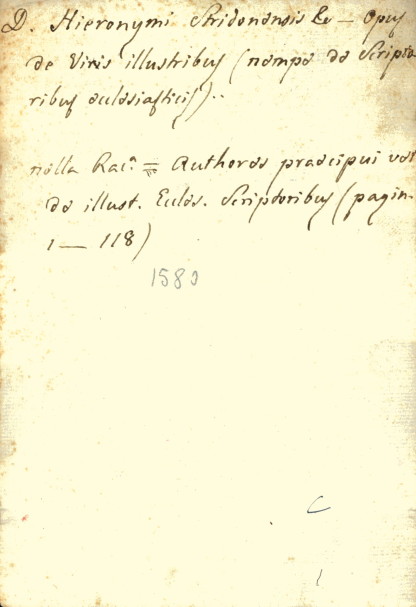 D. Hieronymi Stridonensis &c — Opus
de Viris illustribus (nempe de Scripto-
ribus ecclesiasticis)..
nella Rac.ª = Authores praecipui vet
de illust. Eccles. Scriptoribus (pagin.
1 — 118)
1580
C